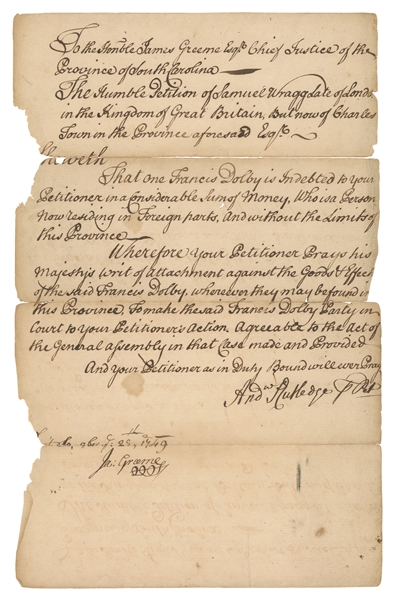 To the Honble James Greeme Esqr. Chief Justice of the
Province of South Carolina
The Humble Petition of Samuel Wragg Late of Londo
in the Kingdom of Great Britain, But now of Charles
Town in the Province aforesaid Esqr.
heweth
That one Francis Dolby is Indebted to your
Petitioner in a Considerable Sum of Money. Who is a Person
Now residing in Foreign parts, And without the Limits of
this Province
Wherefore your Petitioner Prays his
Majestys writ of attachment against the Goods & Effec
of the said Francis Dolby, wherever they may be found in
this Province, To make the said Francis Dolby Party in
Court to your Petitioners Action. Agreeable to the Act of
the General assembly in that Case made and Provided
And your Petitioner as in Duty Bound will ever Pray
Andw. Rutledge P Pet
28th 1749
Ja: Greeme